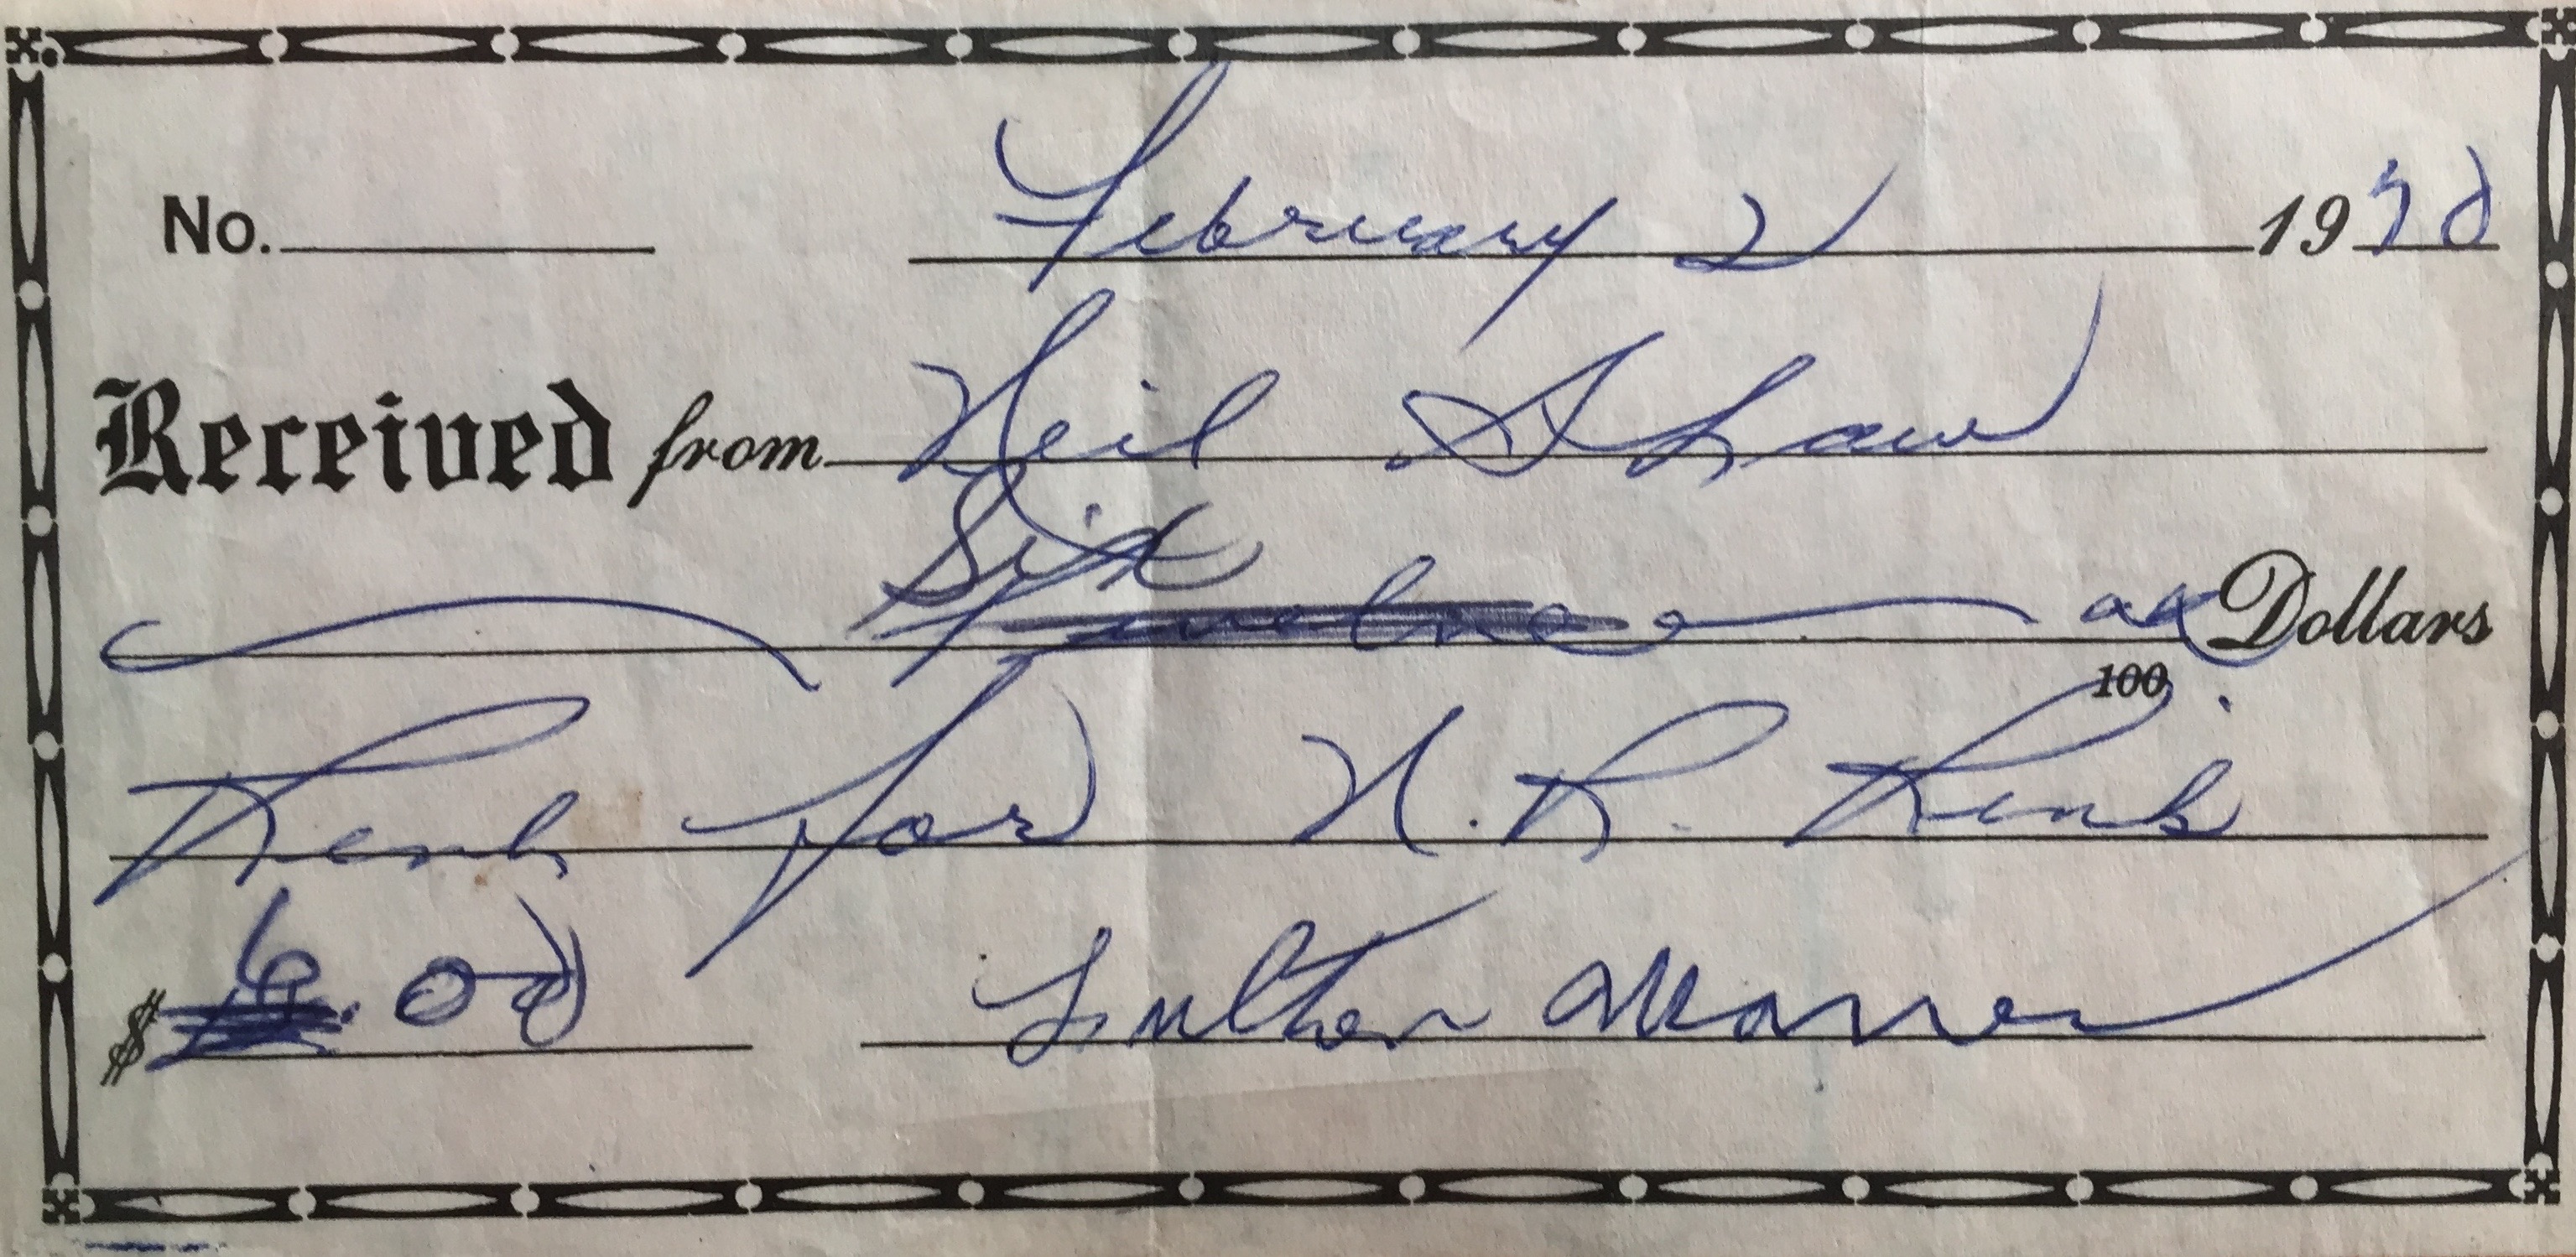 No. February 2 1970
Received from Neil Shaw
Six
Twelve 00 Dollars
100
Rent for N. R. Rink
$ 6.00 Luther